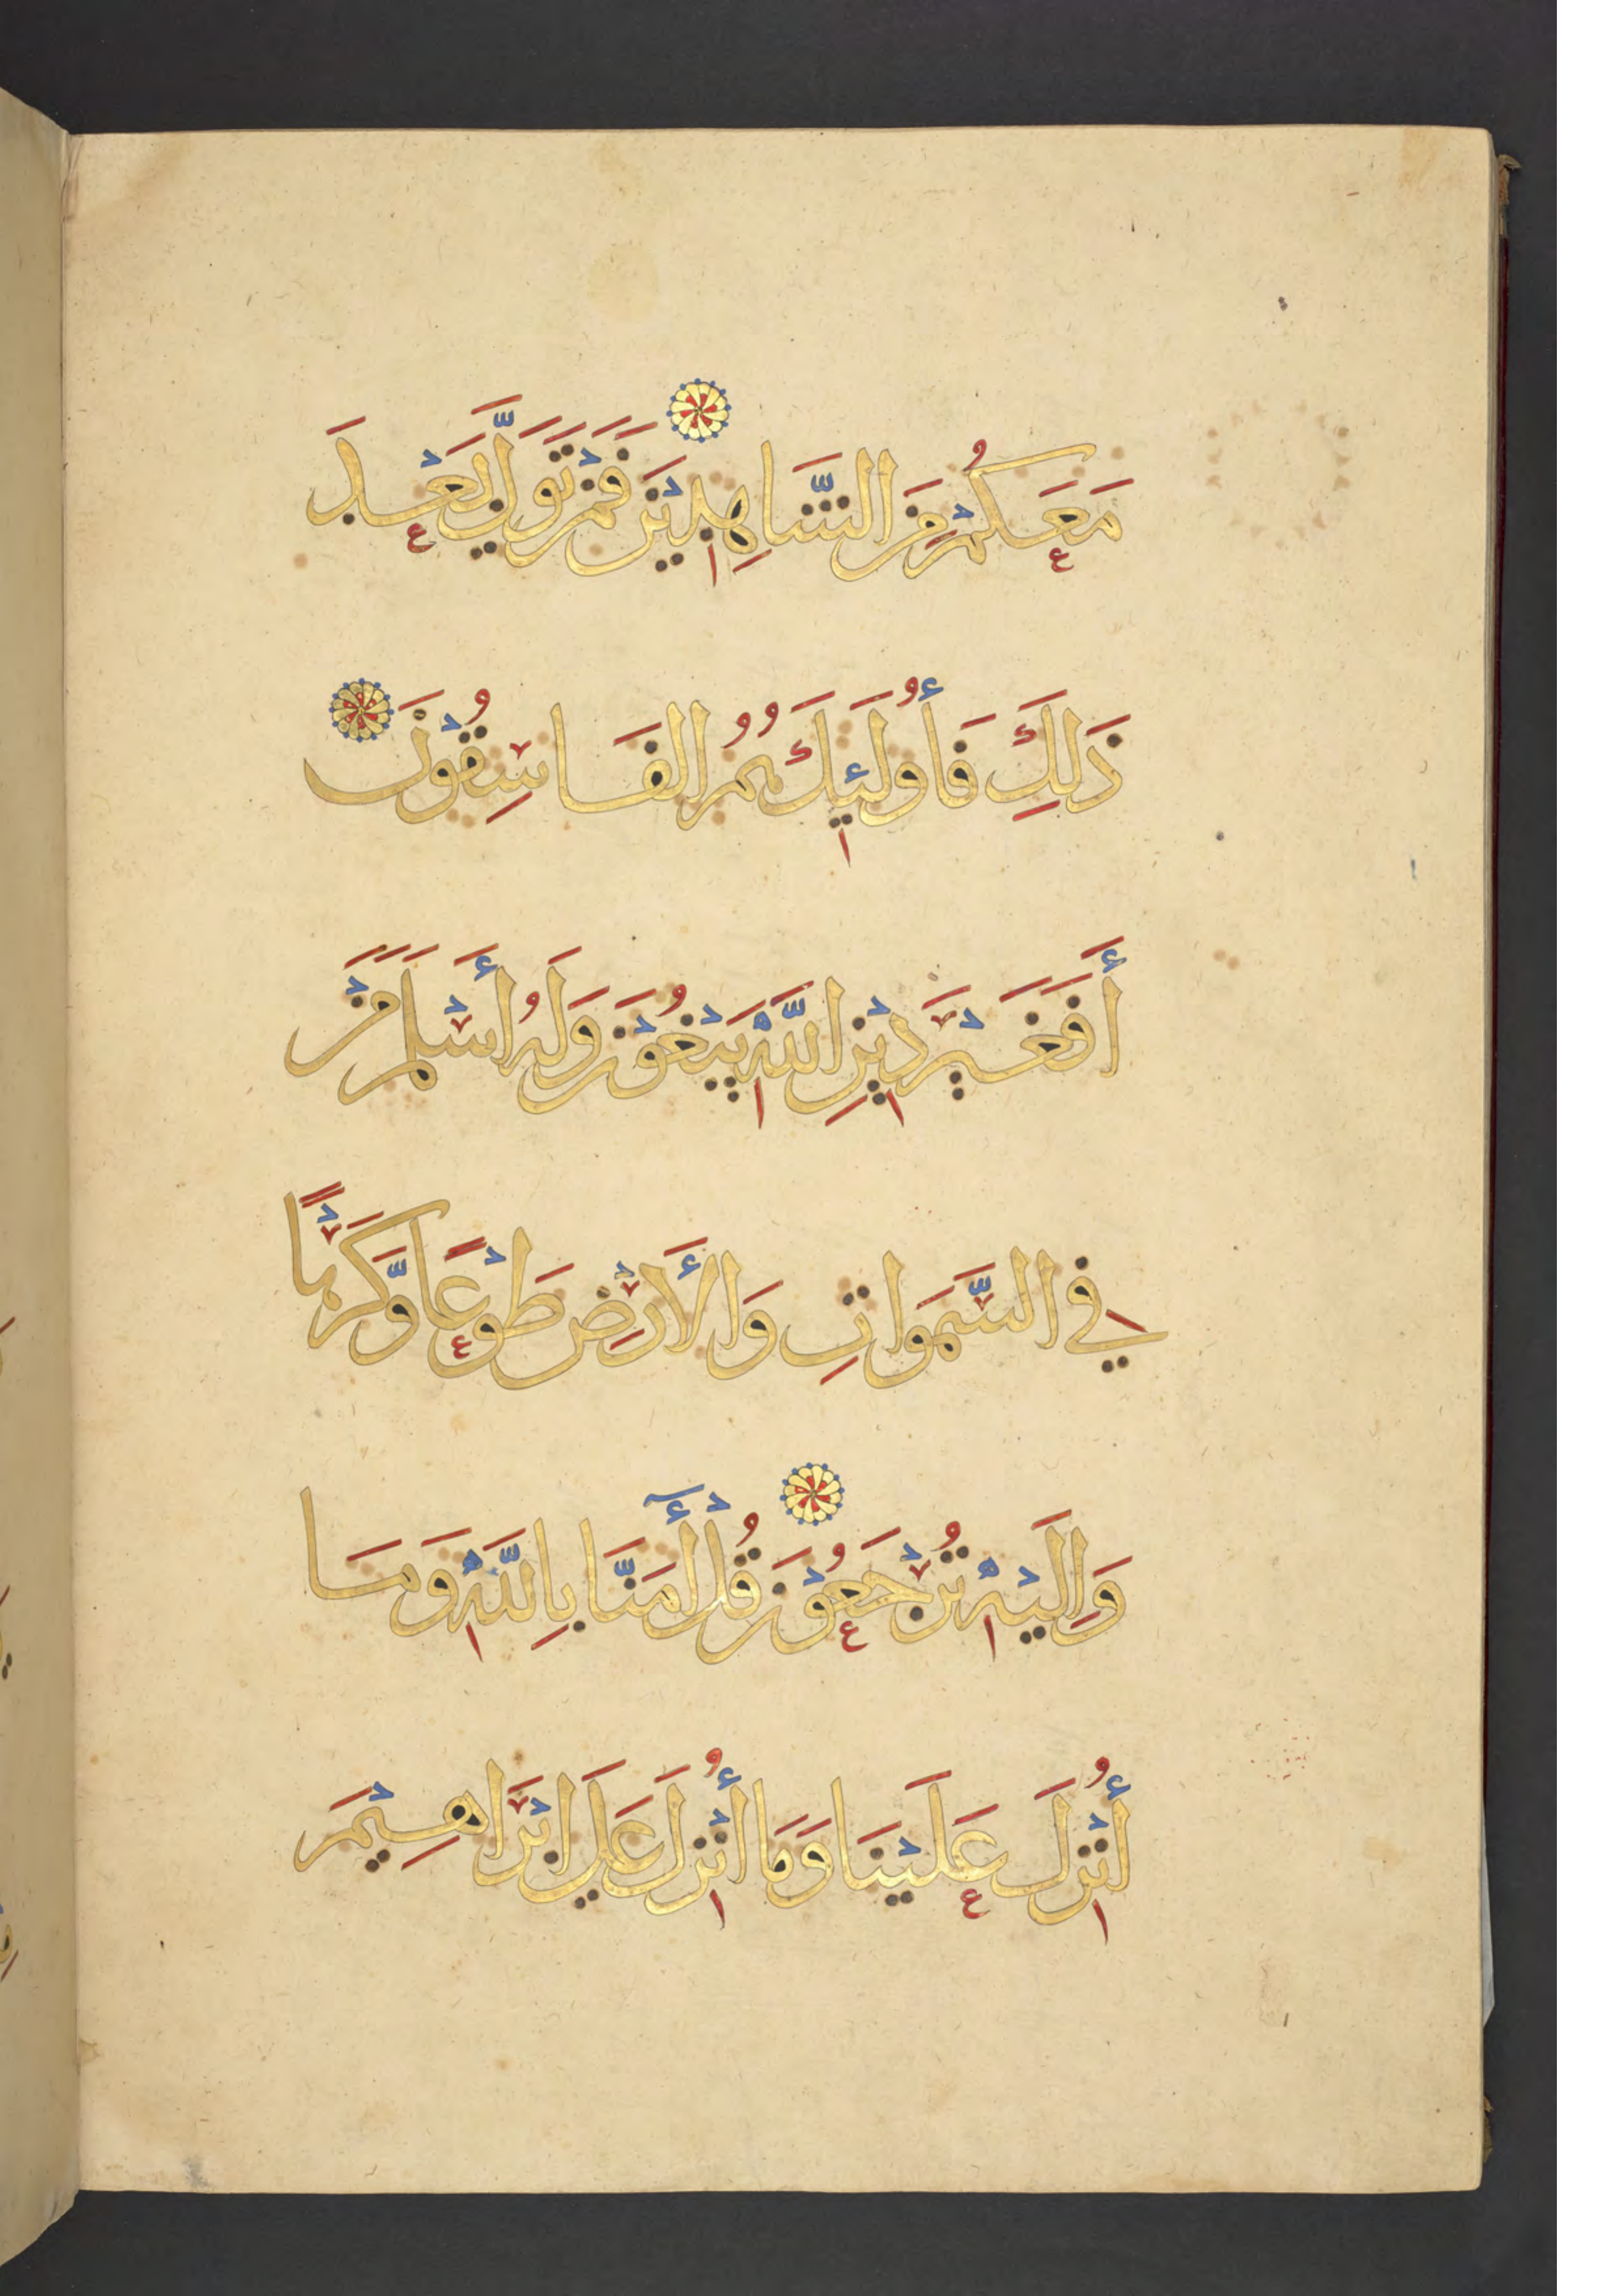 مَعَكُمْ مِنَ الشَّاهِدِيْنَ فَمَنْ تَوَلَّى بَعْدَ
ذَلِكَ فَأُولَئِكَ هُمُ الفَاسِقُوْنَ
أَفَغَيْرَ دِيْنِ اللَّهِ يَبْغُوْنَ وَلَهُ أَسْلَمَ مَنْ
فِي السَّمَوَاتِ وَالأَرْضِ طَوْعًا وَّكَرْهًا
وَإِلَيْهِ تُرْجَعُوْنَ قُلْ أٓمَنَّا بِاللَّهِ وَمَا
أُنْزِلَ عَلَيْنَا وَمَا أُنْزِلَ عَلَى إبْرَاهِيْمَ